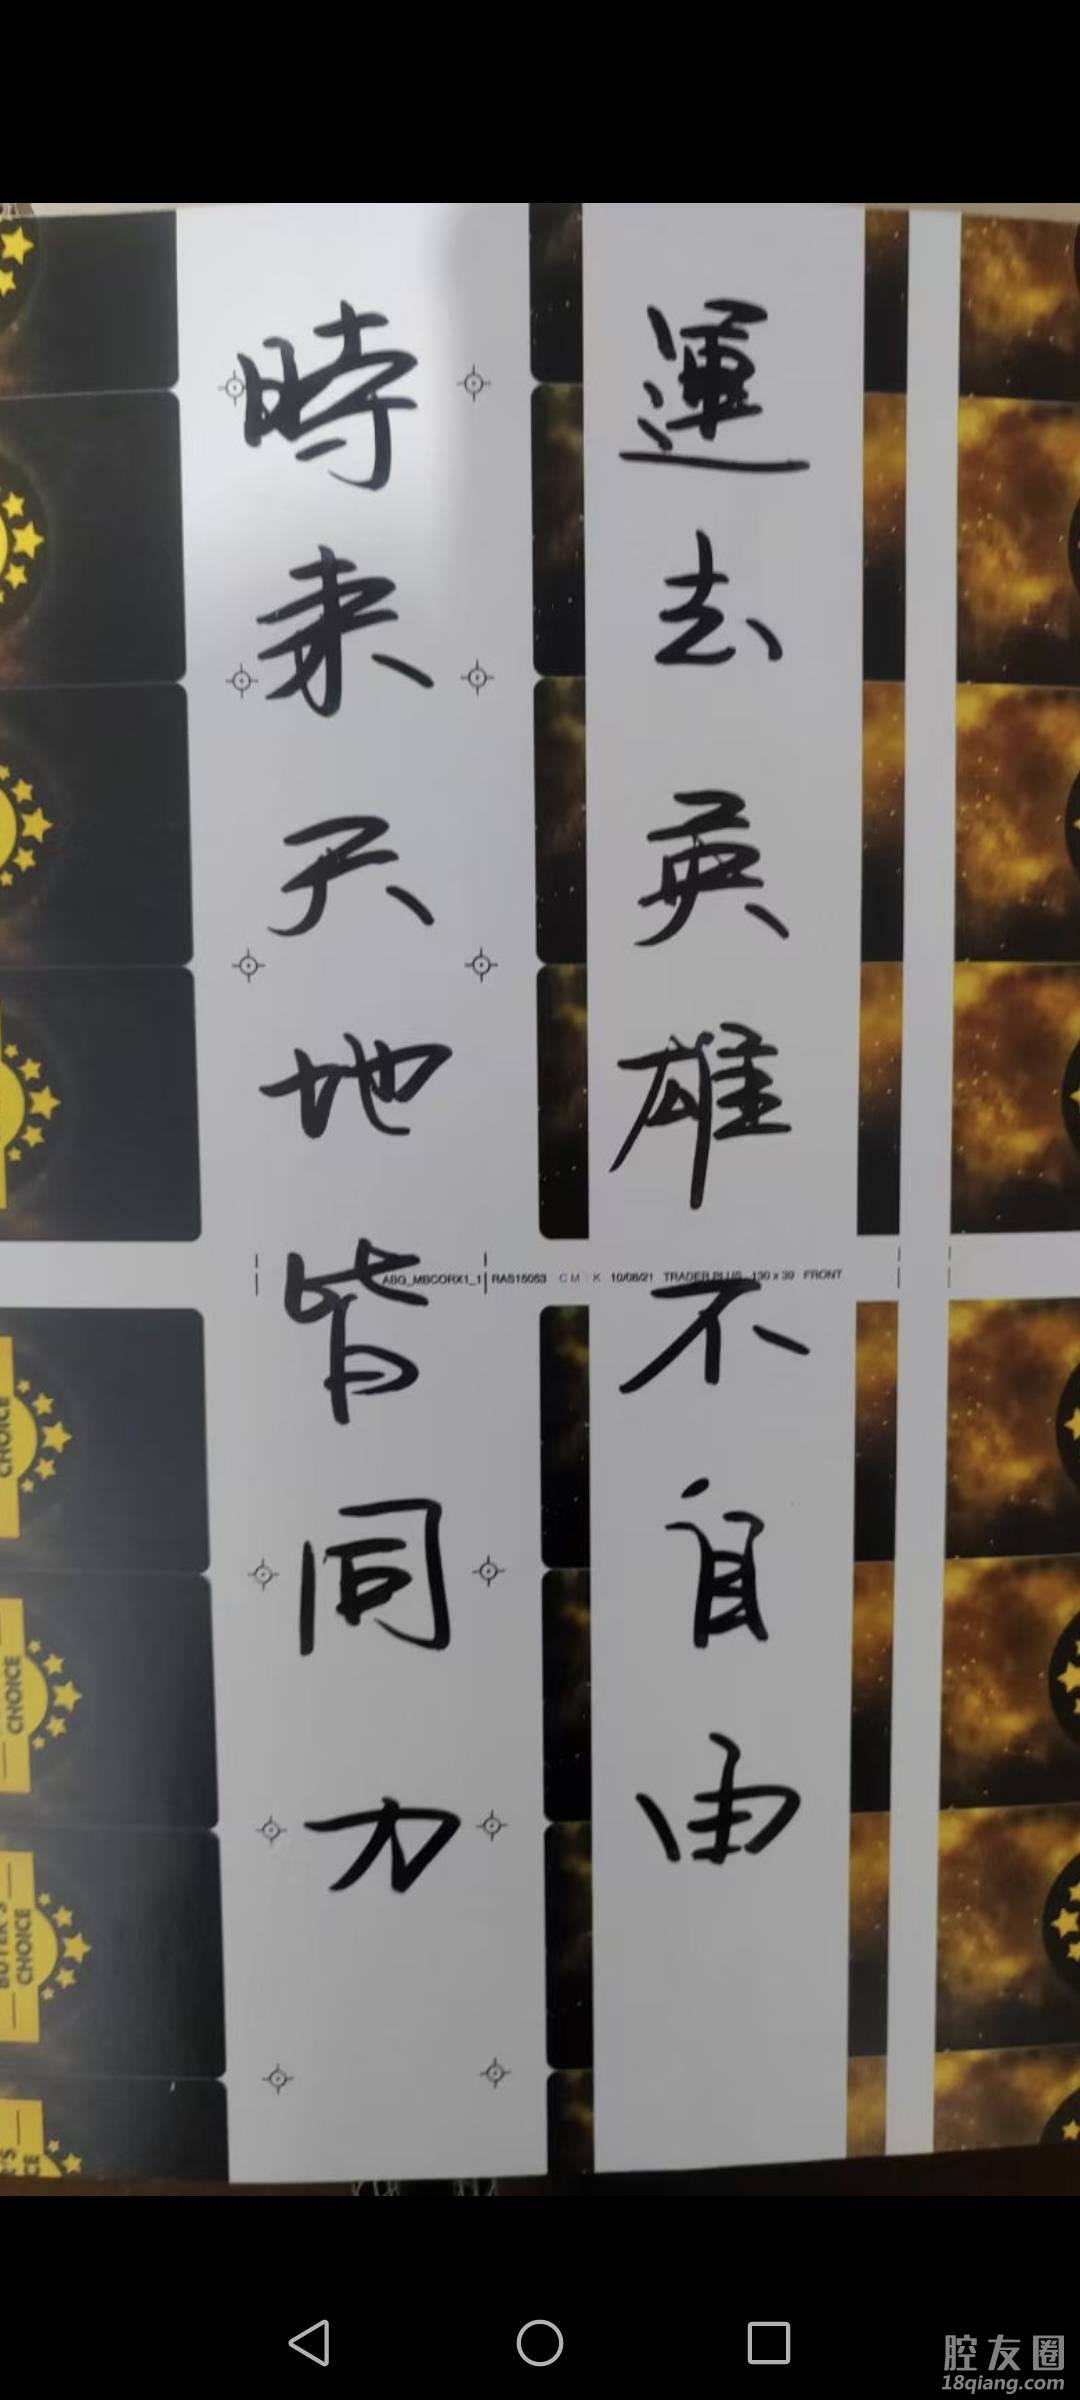 時来天地皆同力
運去英雄不自由
ABG_MBCORX1_1 RAS15053 C M K 10/08/21 TRADER PLUS 130 x 39 FRONT
CHOICE
CHOICE
BUYER'S
CHOICE
腔友圈
18qiang.com